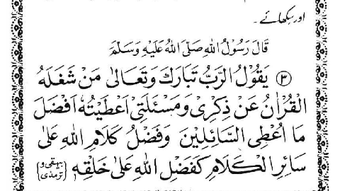 اور سکھائے۔
قَالَ رَسُولُ اللهِ صَلَّى اللهُ عَلَيْهِ وَسَلَّمَ
② يَقُولُ الرَّبُّ تَبَارَكَ وَتَعَالٰى مَنْ شَغَلَهُ
الْقُرْاٰنُ عَنْ ذِكْرِىْ وَمَسْئَلَتِىْ اَعْطَيْتُهٗ اَفْضَلَ
مَا اُعْطِى السَّائِلِيْنَ وَفَضْلُ كَلَامِ اللهِ عَلٰى
سَائِرِ الْكَلَامِ كَفَضْلِ اللهِ عَلٰى خَلْقِهٖ (بیہقی و ترمذی)